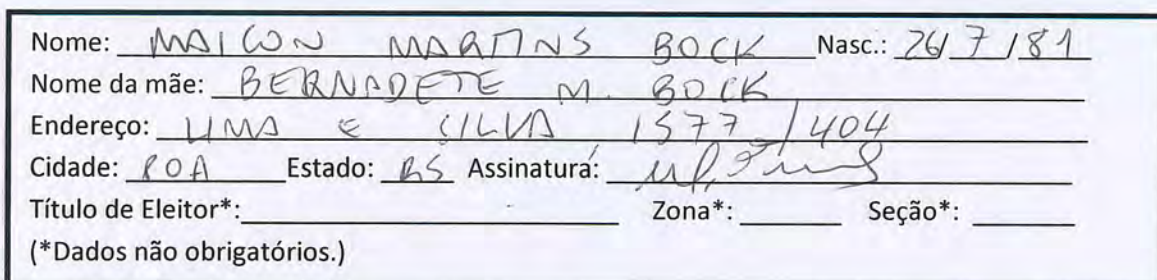 Nome: MAICON MARTINS BOCK Nasc.: 26/7/81
Nome da mãe: BERNADETE M. BOCK
Endereço: LIMA E SILVA 1577/404
Cidade: POA Estado: RS Assinatura:
Título de Eleitor*: Zona*: Seção*:
(*Dados não obrigatórios.)